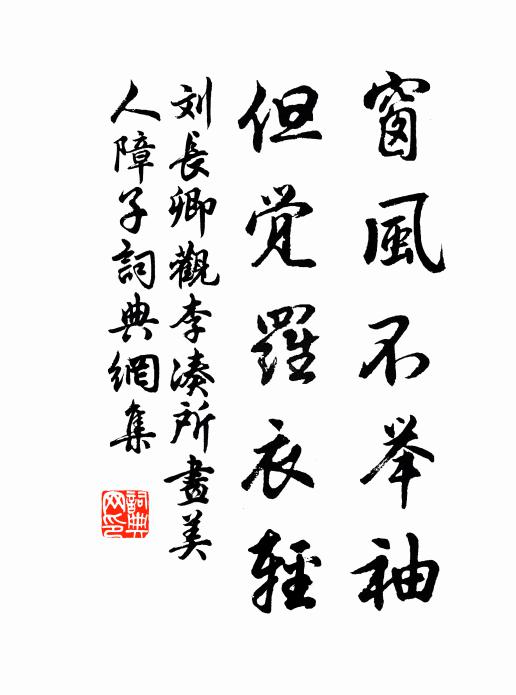 窗風不举袖
但觉羅衣輕
刘長卿觀李凑所畫美
人障子詞典網集
詞典网印